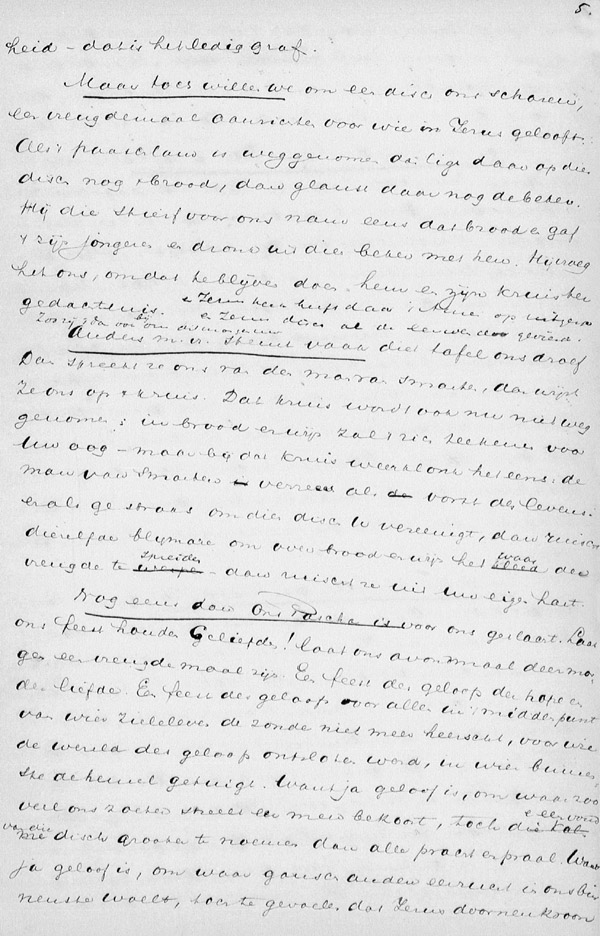 5.
heid - dat is het ledig graf.
Maar toch willen we om een disch ons scharen,
een vreugdemaal aanrichten voor wie in Jezus gelooft.
Als 't paaschlam is weggenomen dan ligt daar op die
disch nog 't brood, dan glanst daar nog de beker.
Hij die stierf voor ons nam eens dat brood en gaf
't zijn jongeren en dronk uit dien beker met hen. Hij vroeg
het ons, om dat te blijven doen, hem en zijn kruis ter
gedachtenis.
Anders m. vr. stemt vaak die tafel ons droef
Dan spreekt ze ons van den man van smarten, dan wijst
ze ons op 't kruis. Dat kruis wordt ook nu niet weg
genomen; in brood en wijn zal 't zich teekenen voor
Uw oog - maar bij dat kruis weerklonk het eens: de
man van smarten verrees als vorst des levens.
en als ge straks om dien disch U vereenigt, dan ruischt
diezelfde blijmare om over brood en wijn het waas der
vreugde te spreiden - dan ruischt ze uit Uw eigen hart.
Nog eens dan Ons Pascha is voor ons geslacht. Laat
ons feest houden Geliefden! laat ons avondmaal deze mor
gen een vreugdemaal zijn. Een feest des geloofs der hope en
der liefde. Een feest des geloofs voor allen in 't middenpunt
van wier zieleleven de zonde niet meer heerscht, voor wie
de wereld des geloofs ontsloten werd, in wier binnen
ste de hemel getuigt. Want ja geloof is, om waar zoo
veel ons zoeken streelt en meer bekoort, toch
disch grooter te noemen dan alle pracht en praal. Want
ja geloof is, om waar gansch andere eerzucht in ons bin
nenste woelt, toch te gevoelen dat Jezus doornenkroon